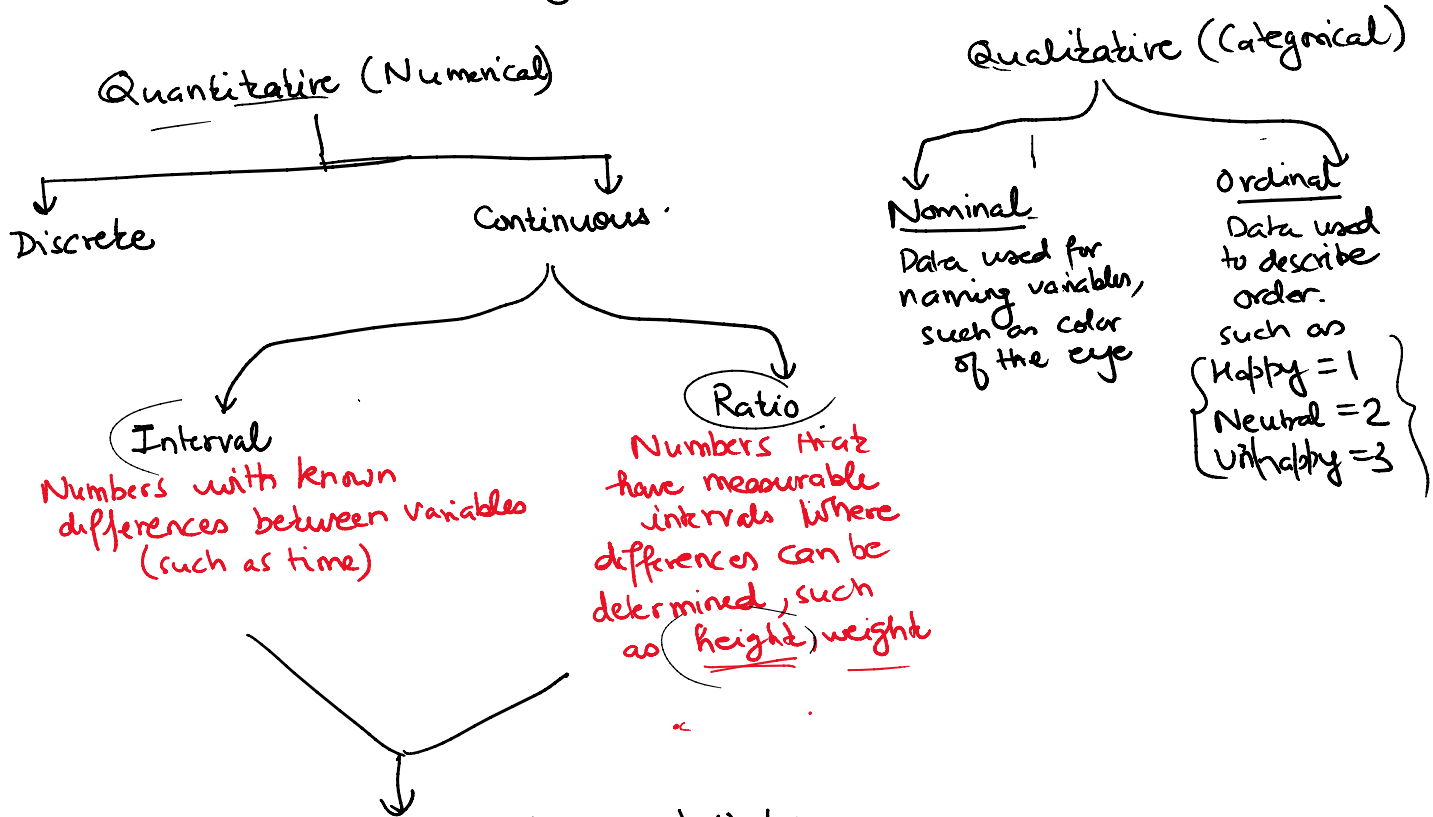 Quantitative (Numerical)
Discrete
Continuous.
Interval
Numbers with known
differences between variables
(such as time)
Ratio
Numbers that
have measurable
intervals where
differences can be
determined, such
as height, weight
Qualitative (Categorical)
Nominal
Data used for
naming variables,
such as color
of the eye
Ordinal
Data used
to describe
order.
such as
Happy = 1
Neutral = 2
Unhappy = 3